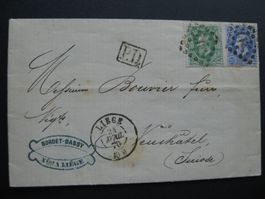 P.D.
Messieurs Bouvier frères
Negts
LIEGE
24
AVRIL
70
Neuchâtel
(Suisse)
BORDET-DARDY
A LIÉGE